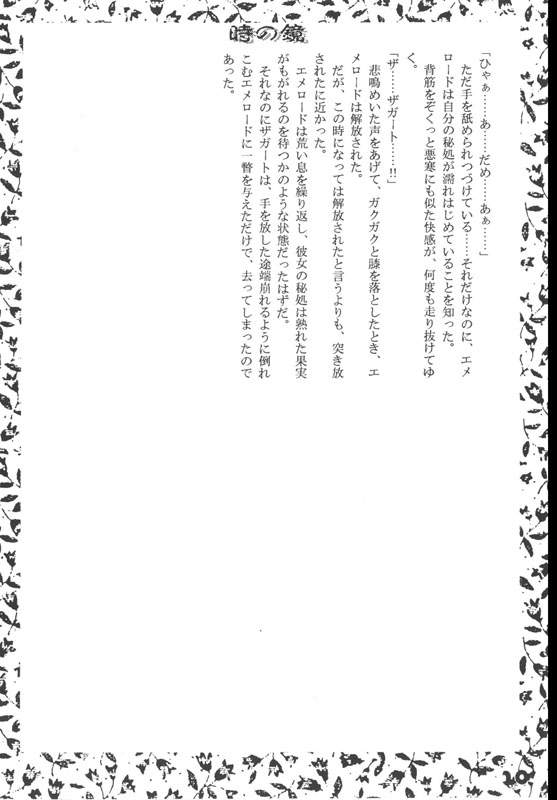 時の鏡
「ひゃぁ……あ……だめ……あぁ……」
ただ手を舐められつづけている……それだけなのに、エメ
ロードは自分の秘処が濡れはじめていることを知った。
背筋をぞくっと悪寒にも似た快感が、何度も走り抜けてゆ
く。
「ザ……ザガート……!!」
悲鳴めいた声をあげて、ガクガクと膝を落としたとき、エ
メロードは解放された。
だが、この時になっては解放されたと言うよりも、突き放
されたに近かった。
エメロードは荒い息を繰り返し、彼女の秘処は熟れた果実
がもがれるのを待つかのような状態だったはずだ。
それなのにザガートは、手を放した途端崩れるように倒れ
こむエメロードに一瞥を与えただけで、去ってしまったので
あった。